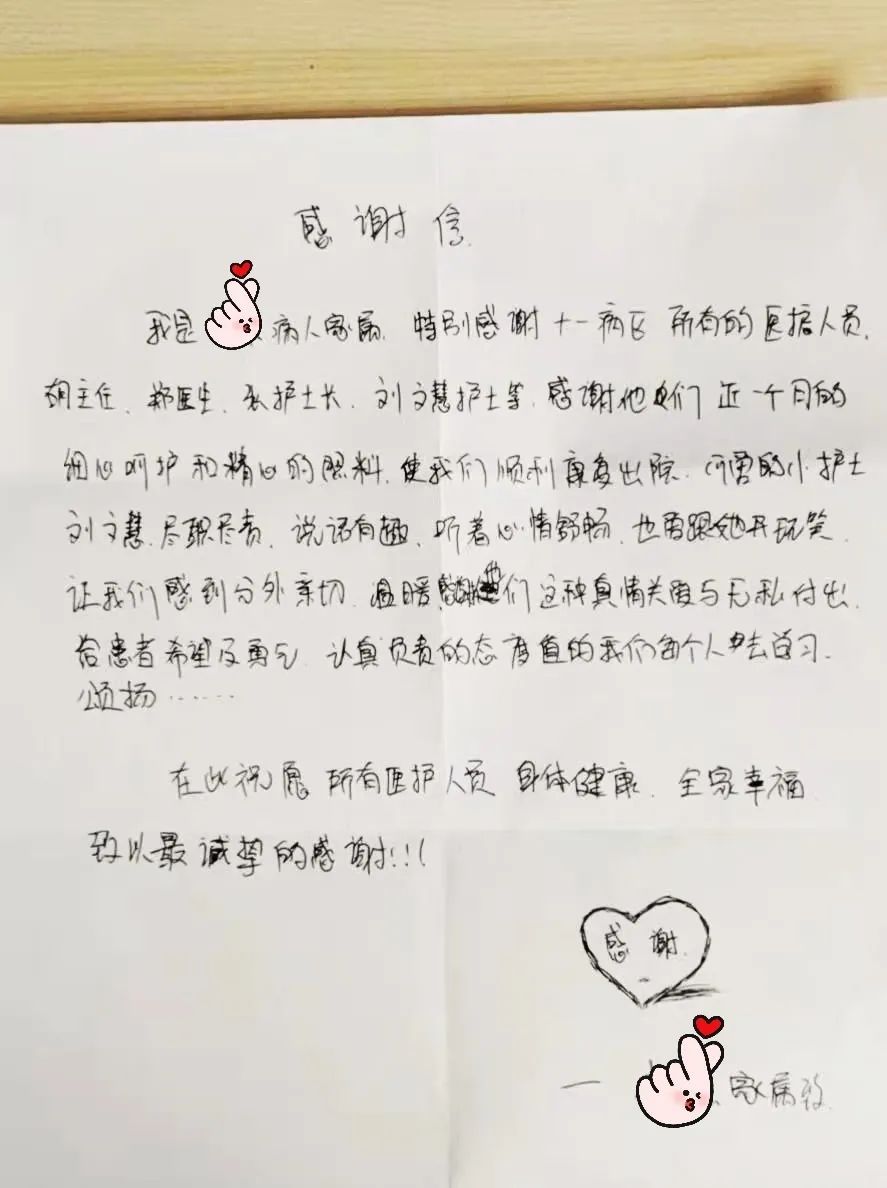 感谢信
我是 病人家属 特别感谢十一病区所有的医护人员,
胡主任、郑医生、护士长、刘文慧护士等.感谢他她们近一个月的
细心呵护和精心的照料,使我们顺利康复出院.可爱的小护士
刘文慧.尽职尽责,说话有趣,听着心情舒畅,也爱跟她开玩笑.
让我们感到分外亲切,温暖 们这种真情关爱与无私付出.
给患者希望及勇气,认真负责的态度值的我们每个人 去学习.
颂扬……
在此祝愿所有医护人员身体健康.全家幸福
致以最诚挚的感谢!!!
感谢
— 家属致.